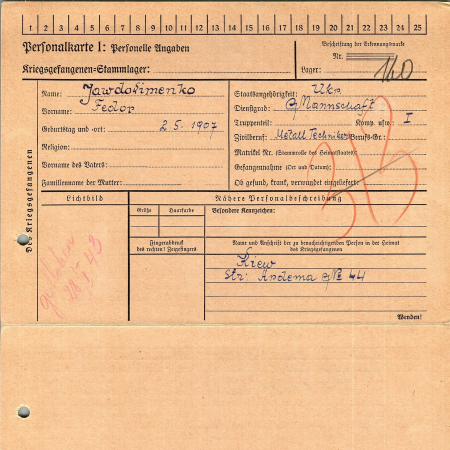 1 2 3 4 5 6 7 8 9 10 11 12 13 14 15 16 17 18 19 20 21 22 23 24 25
Personalkarte I: Personelle Angaben
Kriegsgefangenen=Stammlager:
Beschriftung der Erkennungsmarke
Nr.
Lager: 160
Des Kriegsgefangenen
Name: Jawdokimenko
Vorname: Fedor
Geburtstag und -ort: 2.5.1907
Religion:
Vorname des Vaters:
Familienname der Mutter:
Staatsangehörigkeit: Ukr.
Dienstgrad: Mannschaft
Truppenteil: Komp. usw.: I
Zivilberuf: Metall Techniker Berufs-Gr.:
Matrikel Nr. (Stammrolle des Heimatstaates):
Gefangennahme (Ort und Datum):
Ob gesund, krank, verwundet eingeliefert:
Lichtbild
gestorben
Nähere Personalbeschreibung
Größe
Haarfarbe
Besondere Kennzeichen:
Fingerabdruck
des rechten! Zeigefingers
Name und Anschrift der zu benachrichtigenden Person in der Heimat
des Kriegsgefangenen
Kiew
Str: Ardema № 44
Wenden!